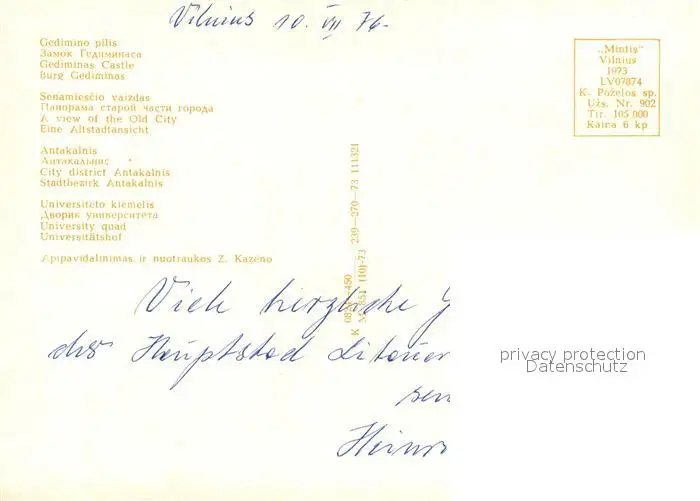 Vilnius 10. VII 76.
Gedimino pilis
Замок Гедиминаса
Gediminas Castle
Burg Gediminas
Senamiesčio vaizdas
Панорама старой части города
A view of the Old City
Eine Altstadtansicht
Antakalnis
Антакальнис
City district Antakalnis
Stadtbezirk Antakalnis
Universiteto kiemelis
Дворик университета
University quad
Universitätshof
Apipavidalinimas ir nuotraukos Z. Kazėno
„Mintis"
Vilnius
1973
LV07874
K. Poželos sp.
Užs. Nr. 902
Tir. 105 000
Kaina 6 kp
239—270—73 111321
(10)-73
Viele herzliche
der Hauptstad Litauen
privacy protection
Datenschutz